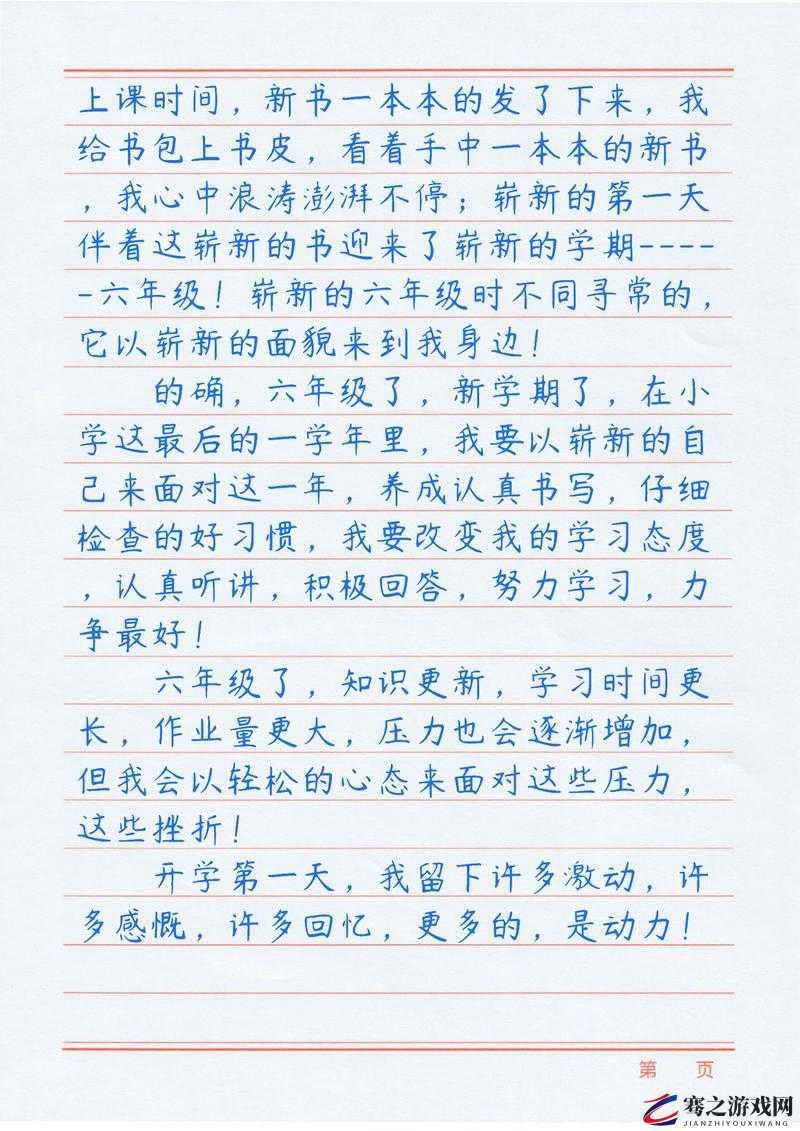 上课时间，新书一本本的发了下来，我
给书包上书皮，看着手中一本本的新书
，我心中浪涛澎湃不停；崭新的第一天
伴着这崭新的书迎来了崭新的学期----
-六年级！崭新的六年级时不同寻常的，
它以崭新的面貌来到我身边！
的确，六年级了，新学期了，在小
学这最后的一学年里，我要以崭新的自
己来面对这一年，养成认真书写，仔细
检查的好习惯，我要改变我的学习态度
，认真听讲，积极回答，努力学习，力
争最好！
六年级了，知识更新，学习时间更
长，作业量更大，压力也会逐渐增加，
但我会以轻松的心态来面对这些压力，
这些挫折！
开学第一天，我留下许多激动，许
多感慨，许多回忆，更多的，是动力！
第 页
骞之游戏网
JIANZHIYOUXIWANG